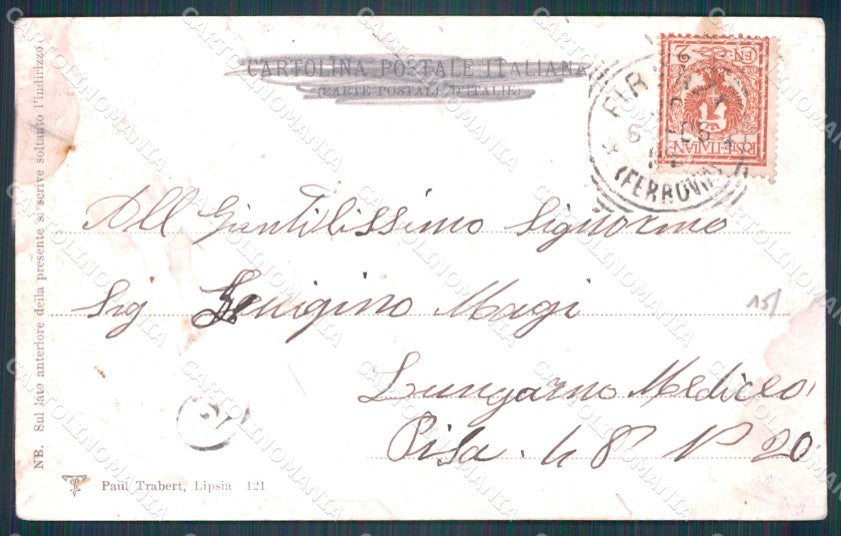 CARTOLINA POSTALE ITALIANA
(CARTE POSTALE D'ITALIE)
2
POSTE ITALIANE
(FERROVIA)
All Gientilissimo Signorino
Sig Luigino Magi
Lungarno Mediceo
Pisa. 48 N 20
15/
NB. Sul lato anteriore della presente si scrive soltanto l'indirizzo
Paul Trabert, Lipsia 121
CARTOLINOMANIA